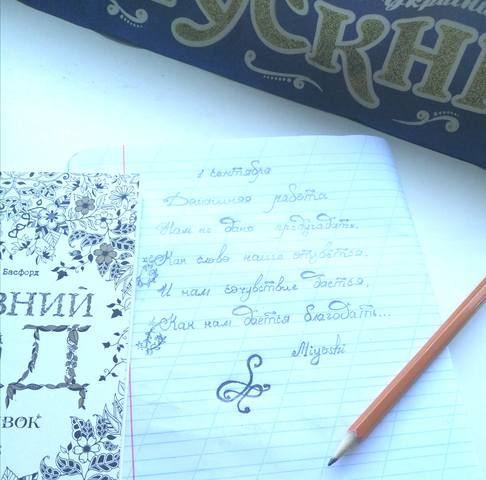 украинс
УСКН
1 сентября
Домашняя работа
Нам не дано предугадать,
Как слово наше отзовётся.
И нам сочувствие даётся,
Как нам даётся благодать...
Miyoshi
Басфорд
ВНИЙ
Д
ВОК